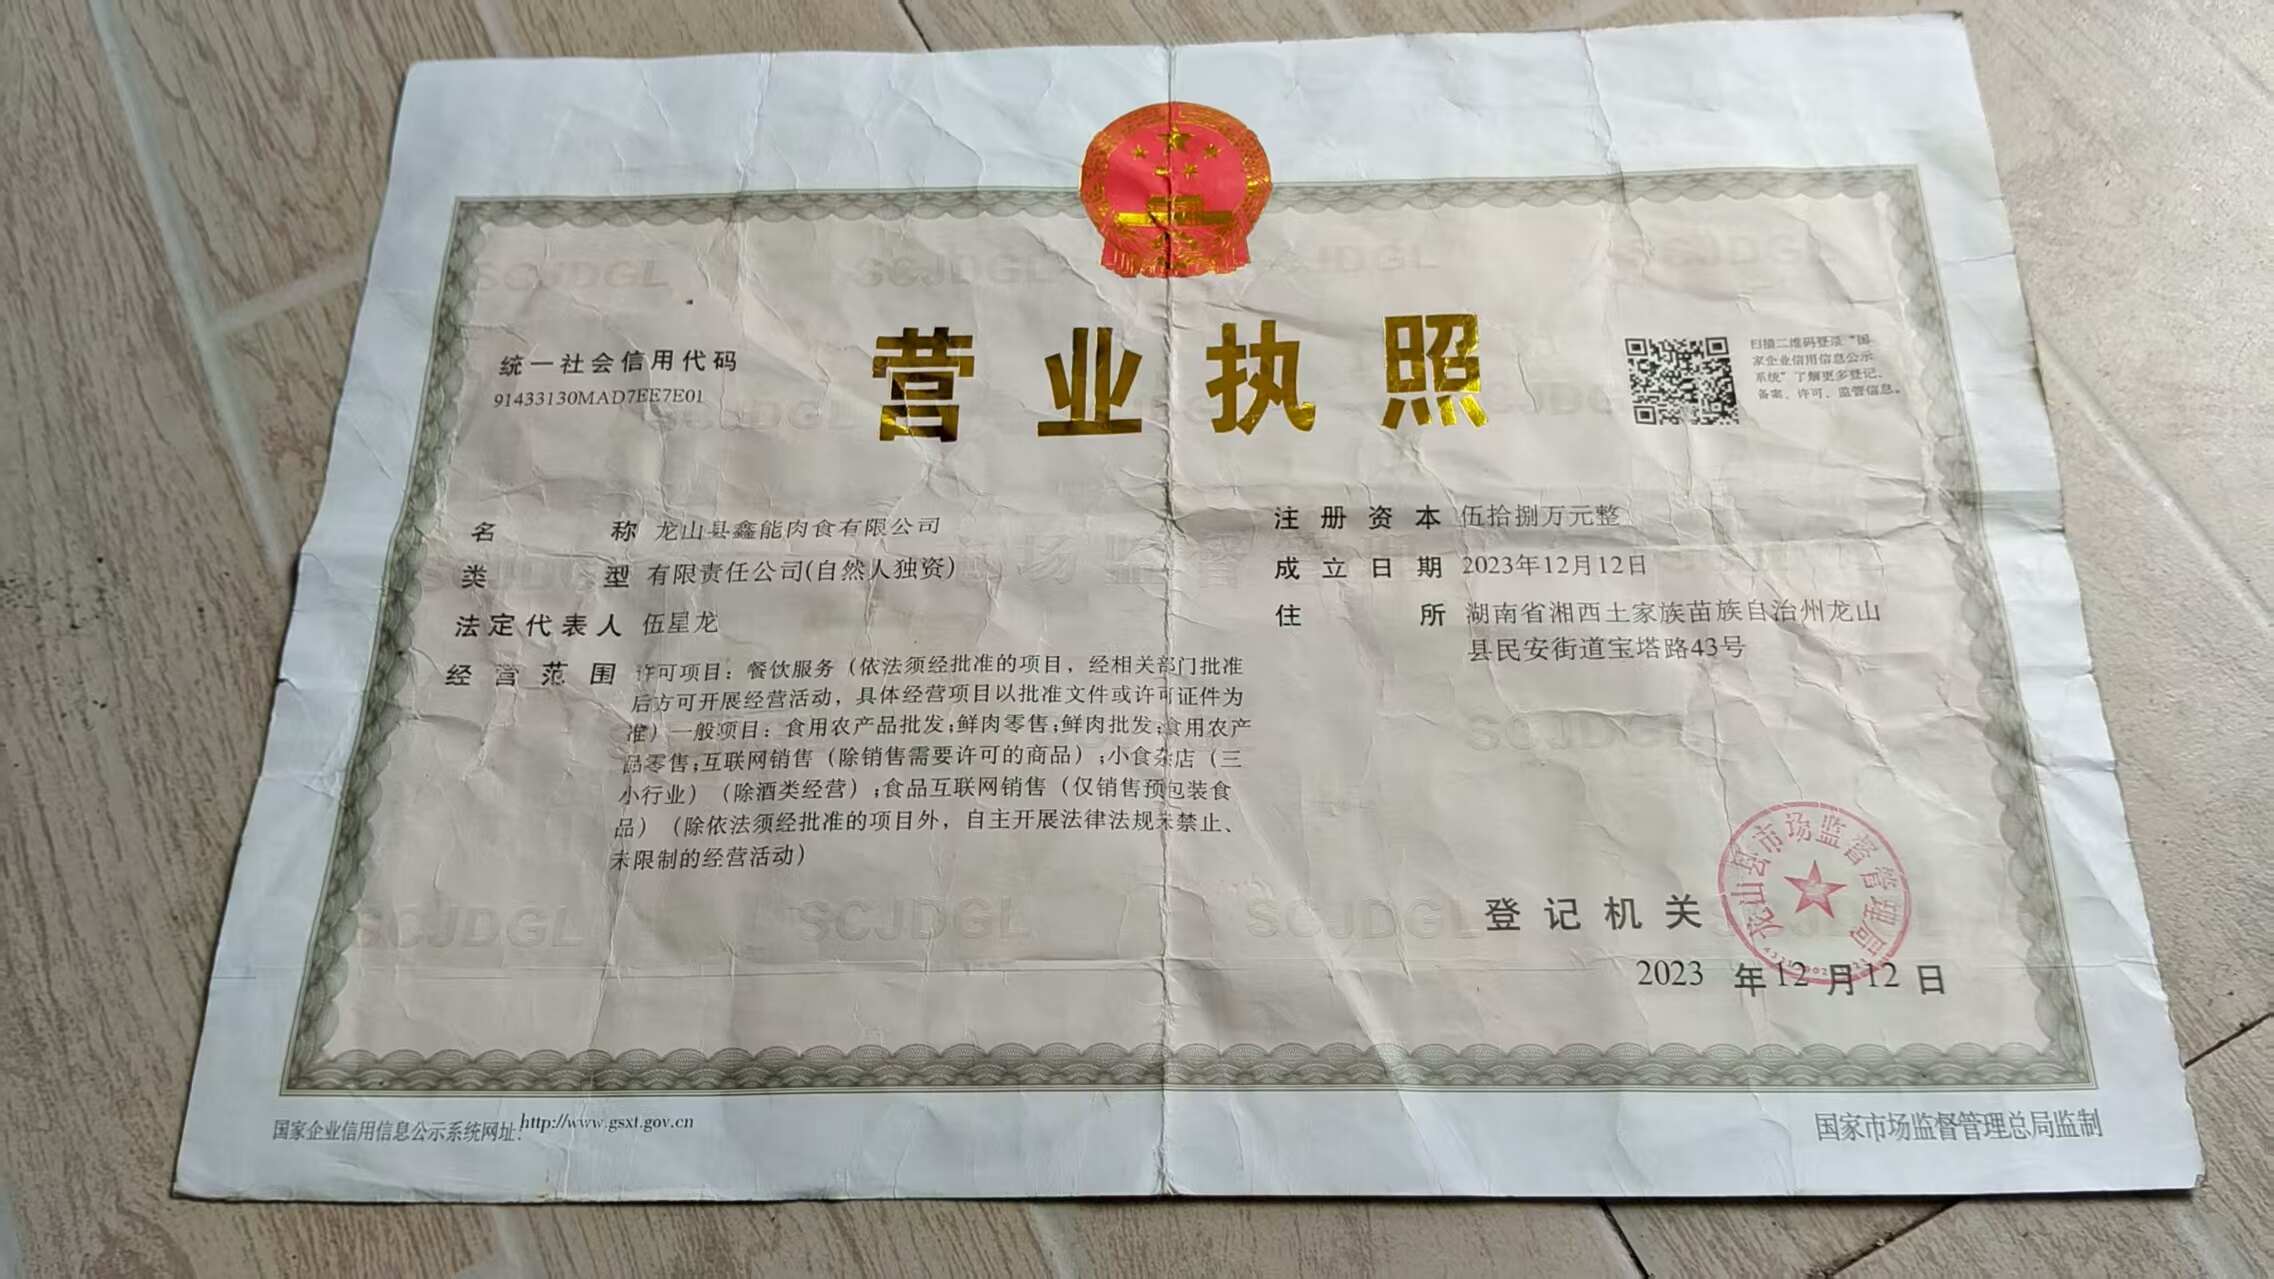 营业执照
统一社会信用代码
91433130MAD7EE7E01
扫描二维码登录“国
家企业信用信息公示
系统”了解更多登记、
备案、许可、监管信息。
名称 龙山县鑫能肉食有限公司
类型 有限责任公司(自然人独资)
法定代表人 伍星龙
经营范围 许可项目：餐饮服务（依法须经批准的项目，经相关部门批准
后方可开展经营活动，具体经营项目以批准文件或许可证件为
准）一般项目：食用农产品批发;鲜肉零售;鲜肉批发;食用农产
品零售;互联网销售（除销售需要许可的商品）;小食杂店（三
小行业）（除酒类经营）;食品互联网销售（仅销售预包装食
品）（除依法须经批准的项目外，自主开展法律法规未禁止、
未限制的经营活动）
注册资本 伍拾捌万元整
成立日期 2023年12月12日
住所 湖南省湘西土家族苗族自治州龙山
县民安街道宝塔路43号
龙山县市场监督管理局
登记机关
2023 年 12 月 12 日
国家企业信用信息公示系统网址：http://www.gsxt.gov.cn
国家市场监督管理总局监制
SCJDGL